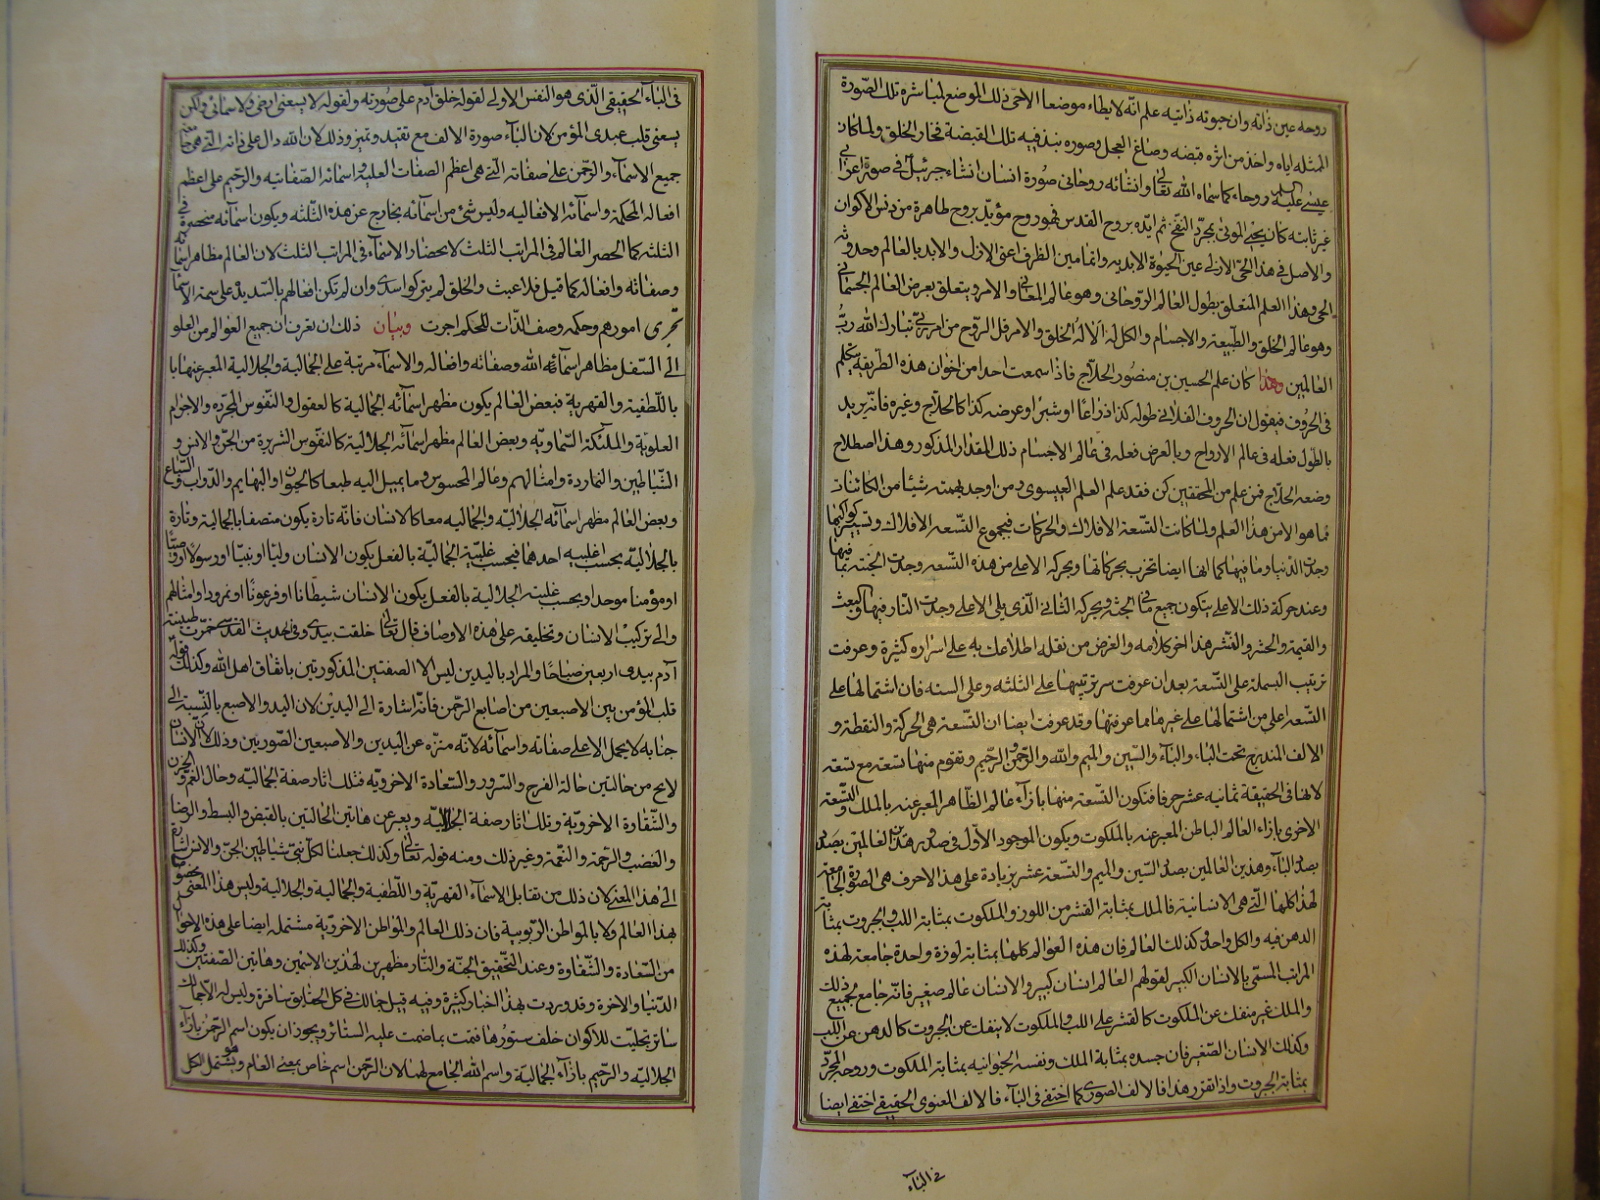 روحه عين ذاته وان حيوته ذاتيه علم انّه لا يطاء موضعا الا حى ذلك الموضع لمباشره تلك الصّورة
الممثله اياه واخذ من اثره قبضه وصاغ العجل وصوره ونبذ فيه تلك القبضة فخار الخلق ولما كان
عيسى عليه السلم روحا كما سماه الله تعالى وانشائه روحانى صورة انسان انشاء جبرئيل فى صورة اعرابى
غير ثابته كان يحيى الموتى بمجرّد النّفخ ثم ايّده بروح القدس فهو روح مؤيّد بروح طاهرة من دنس الاكوان
والاصل فى هذا الحىّ الازلى عين الحيوة الابديه وانما مين الظرف اعنى الازل والابد بالعالم وحدوثه
الحى وهذا العلم المتعلق بطول العالم الرّوحانى وهو عالم المعانى والامر ويتعلق بعرض العالم الجسمانى
وهو عالم الخلق والطّبيعة والاجسام والكل لله الا له الخلق والامر قل الرّوح من امر ربّى تبارك الله ربّ
العالمين وهذا كان علم الحسين بن منصور الحلّاج فاذا سمعت احدا من اخوان هذه الطريقة يتكلم
فى الحروف فيقول ان الحروف الفلانى طوله كذا ذراعًا او شبرًا وعرضه كذا كالحلّاج وغيره فانّه يريد
بالطّول فعله فى عالم الارواح وبالعرض فعله فى عالم الاجسام ذلك المقدار المذكور وهذا اصطلاح
وضعه الحلّاج فمن علم من المحققين كن فقد علم العلم العيسوى ومن اوجد بهمته شيئا من الكائنات
فما هو الا من هذا العلم ولما كانت التّسعة الافلاك والحركات فبمجموع التّسعه الافلاك وتسيير كواكبها
وجدت الدّنيا وما فيها كما انها ايضا تخرب بحركاتها وبحركه الاعلى من هذه التّسعه وجدت الجنّة بما فيها
وعند حركة ذلك الاعلى يتكون جميع ما فى الجنّة وبحركه الثّانى الّذى يلى الاعلى وجدت النّار فيها والبعث
والقيمة والحشر والنّشر هذا اخر كلامه والغرض من نقله اطلاعك به على اسراره كثيرة وعرفت
ترتيب البسملة على التّسعة بعد ان عرفت سرّ ترتيبها على الثّلثة وعلى السته فان اشتمالها على
التّسعة اعلى من اشتمالها على غيرها مما عرفتها وقد عرفت ايضا ان التّسعة هى الحركة والنقطة و
الالف المندرج تحت الباء، والبآء والسّين والميم والله والرّحمن والرّحيم وتقوم منها تسعه مع تسعه
لانها فى الحقيقة ثمانيه عشر حرفا فتكون التّسعة منها بازآء عالم الظّاهر المعبر عنه بالملك والتّسعة
الاخرى بازاء العالم الباطن المعبر عنه بالملكوت ويكون الموجود الاوّل فى صدور هذين العالمين بصدد
بصدد البآء وهذين العالمين بصدد السّين والميم والتّسعة عشر بزيادة على هذا الاحرف هى الصّورة الجامعة
لهذا كلها الّتى هى الانسانية فالملك بمثابة القشر من اللوز والملكوت بمثابة اللب والجبروت بمثابة
الدهن فيه والكل واحد وكذلك العالم فان هذه العوالم كلها بمثابة لوزة واحدة جامعة لهذه
المراتب المسمّى بالانسان الكبير لقولهم العالم انسان كبير والانسان عالم صغير فانّه جامع لجميع ذلك
والملك غير منفك عن الملكوت كالقشر على اللب والملكوت لا ينفك عن الجبروت كالدهن عن اللب
وكذلك الانسان الصّغير فان جسده بمثابة الملك ونفسه الحيوانيه بمثابة الملكوت وروحه المجرّد
بمثابة الجبروت واذا تقرر هذا فالالف الصّورى كما اختفى فى البآء فالالف المعنوى الحقيقى اختفى ايضا
فى البآء
فى البآء الحقيقى الّذى هو النفس الاولى لقوله خلق آدم على صورته ولقوله لا يسعنى ارضى ولا سمائى ولكن
يسعنى قلب عبدى المؤمن لان البآء صورة الالف مع تقييد وتميز وذلك لان الله دال على ذاته الّتى هى جامع
جميع الاسمآء والرّحمن على صفاته الّتى هى اعظم الصفات العلية واسمائه الصّفاتيه والرّحيم على اعظم
افعاله المحكمة واسمائه الافعاليه وليس شئ من اسمائه بخارج عن هذه الثّلثه ويكون اسمائه منحصرة فى
الثلثة كما انحصر العالم فى المراتب الثلث لانحصار الاسمآء فى المراتب الثلث لان العالم مظاهر اسمائه
وصفاته وافعاله كما قيل فلا عبث والخلق لم يتركوا سدى وان لم تكن افعالهم بالسّديدة على سمة الاسما
تجرى امورهم وحكمه وصف الذّات للحكم اجرت وبيان ذلك ان تعرف ان جميع العوالم من العلو
الى السّفل مظاهر اسمائه الله وصفاته وافعاله والاسمآء مرتبة على الجمالية والجلالية المعبر عنها با
باللّطفية والقهرية فبعض العالم يكون مظهر اسمائه الجمالية كالعقول والنّفوس المجرّده والاجرام
العلويّة والملئكة السّماويّه وبعض العالم مظهر اسمائه الجلالية كالنفوس الشريرة من الجنّ والانس و
الشّياطين والنماردة وامثالهم وعالم المحسوس وما يميل اليه طبعا كالحيوان والبهايم والدّواب والسّباع
وبعض العالم مظهر اسمائه الجلاليّه والجماليه معا كالانسان فانّه تارة يكون متصفا بالجمالية وتارة
بالجلاليّة بحسب اغلبيه احدهما فبحسب غلبيّة الجماليّة بالفعل يكون الانسان وليّا او نبيّا او رسولا او وصيّا
او مؤمنا موحدا وبحسب غلبته الجلالية بالفعل يكون الانسان شيطانا او فرعونًا او نمرودا وامثالهم
والى تركيب الانسان وتخليقه على هذه الاوصاف قال تعالى خلقت بيدى وفى الحديث القدسى خمّرت طينة
آدم بيدى اربعين صباحًا والمراد باليدين ليس الا الصفتين المذكورتين باتفاق اهل الله وكذلك قوله
قلب المؤمن بين الاصبعين من اصابع الرّحمن فانّه اشارة الى اليدين لان اليد والاصبع بالنّسبة الى
جنابه لا يحمل الا على صفاته واسمائه لانّه منزّه عن اليدين والاصبعين الصّوريين وذلك لان الانسان
لا يخ من حالتين حالة الفرح والسّرور والسّعادة الاخرويه فتلك اثار صفة الجماليّه وحال الغم والحزن
والشّقاوة الاخرويّة وتلك اثار صفة الجلاليّه ويعبر عن هاتين الحالتين بالقبض والبسط والرضا
والغضب والرّحمة والنقمة وغير ذلك ومنه قوله تعالى وكذلك جعلنا لكل نبىّ شياطين الجنّ والانس اشارة
الى هذا المعنى لان ذلك من تقابل الاسمآء القهريّة واللّطفية والجمالية والجلالية وليس هذا المعنى مخصوصا
بهذا العالم ولا بالمواطن الرّبوبية فان ذلك العالم والمواطن الاخرويّة مشتملة ايضا على هذه الاحوال
من السّعادة والشّقاوة وعند التّحقيق الجنّة والنّار مظهرين لهذين الاسمين وهاتين الصّفتين وكذلك
الدّنيا والاخرة وقد وردت بهذا اخبار كثيرة وفيه قيل جمالك فى كل الحقايق سافرة وليس له الا جلالك
ساتر تجليّت للاكوان خلف ستورها فنمت بما ضمت عليه السّتائر ويجوز ان يكون اسم الرّحمن بازآء
الجلاليّه والرّحيم بازآء الجماليّة واسم الله الجامع لهما لان الرّحمن اسم خاص بمعنى العام وهو يشتمل الكل